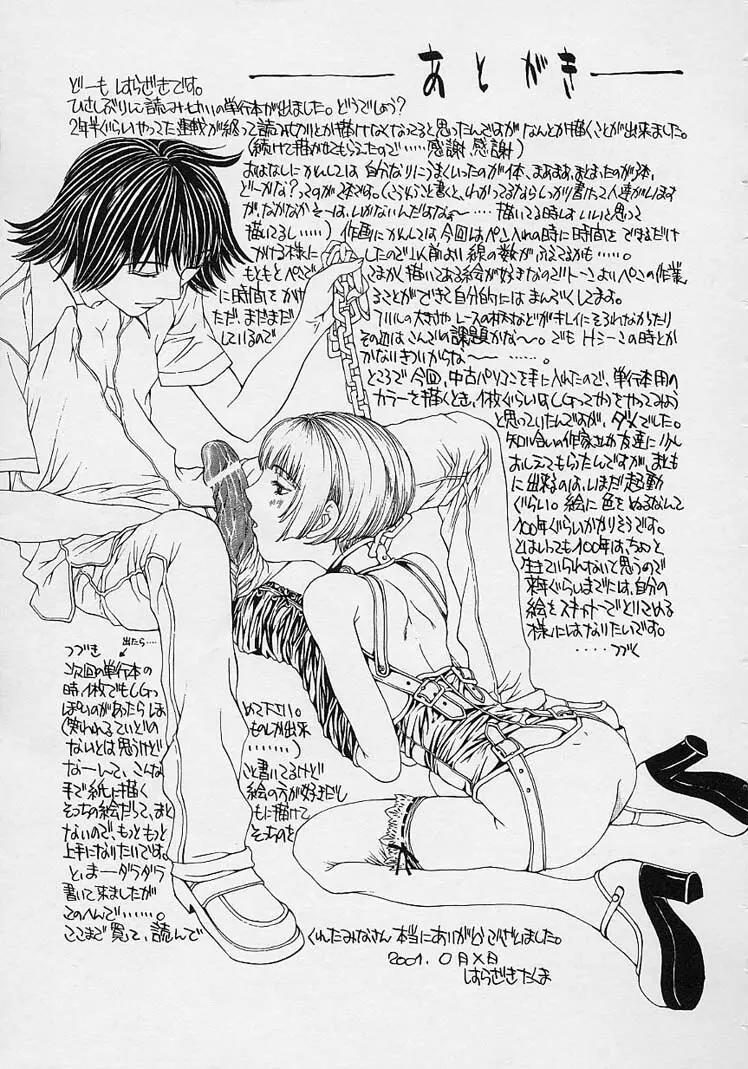 あとがき
どーも はらざきです。
ひさしぶりに読み切りの単行本が出ました。どうでしょう?
2年半ぐらいやってた連載が終って読み切りとか描けなくなってると思ったんですがなんとか描くことが出来ました。
(続けて描かせてもらえたので……感謝、感謝)
おはなしにかんしては 自分なりにうまくいったのが1本、まあまあ、まとまったのが3本、
どーかな?ってのが
が、なかなかそーは、いかないんだよなぁ〜…… 描いてる時は いいと思って
描いてるし……) 作画にかんしては 今回はペン入れの時に時間を できるだけ
かける様に したので以前より線の数が ふえてるかも……。
もともとペンで こまかく描いてある絵が好きなのでトーンよりペンの作業
に時間をかけ ることができて自分的には まんぞくしてます。
ただ、まだまだ
しているので その辺は こんごの課題かな〜。でも Hシーンの時とか
ところで今回、中古パソコンを手に入れたので、単行本用の
カラーを描くとき、1枚ぐらいは CGってやつをやってみよう
と思っていたんですが、ダメでした。
知り合いの作家さんや友達に少し
おしえてもらったんですが、まとも
に出来るのは、いまだ起動
ぐらい。絵に色をぬるなんて
100年ぐらいかかりそうです。
とはいっても100年は、ちょっと
生きていられないと思うので
来年ぐらいまでには、自分の
絵をスキャナーでとりこめる
様にはなりたいです。
……つづく
つづき
出たら…
次回の単行本の
時、1枚でもCGっ
ぽいのがあったら ほ めて下さい。
(笑われるていどの ものしか出来
ないとは思うけど ……)
なーんて、こんな こと書いてるけど
手で紙に描く 絵の方が好きだし
そっちの絵だって、まと もに描けて
ないので、もっともっと そっちのを
上手になりたいです。
とゆーダラダラ
書いて来ましたが
このへんで……。
ここまで 買って、読んで くれたみなさん 本当にありがとうございました。
2001. 0月X月
はらざきたくま